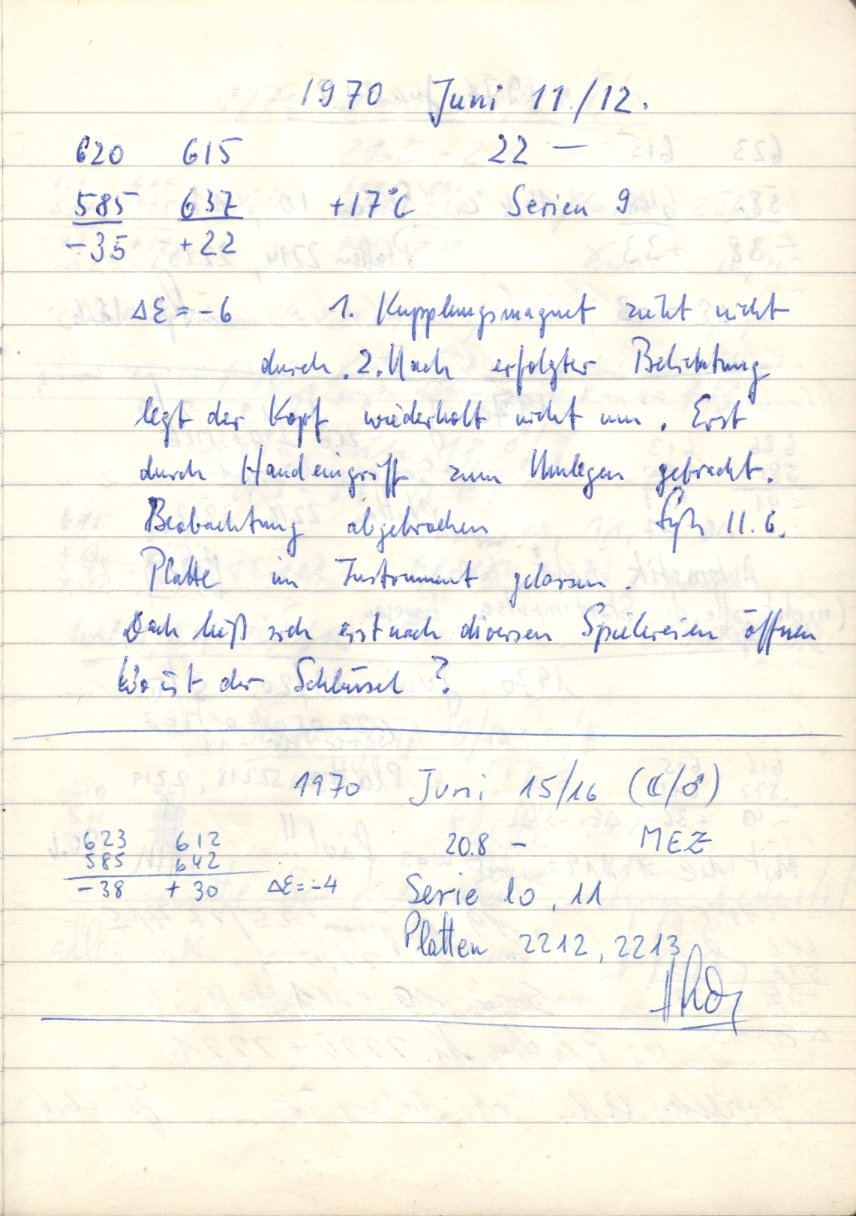 1970 Juni 11./12.
620 615 22 —
585 637 +17°C Serien 9
-35 +22
Δε = -6 1. Kupplungsmagnet zieht nicht
durch. 2. Nach erfolgter Belichtung
legt der Kopf wiederholt nicht um. Erst
durch Handeingriff zum Umlegen gebracht.
Beobachtung abgebrochen 11.6.
Platte im Instrument gelassen.
Dach ließ sich erst nach diversen Spielereien öffnen
Wo ist der Schlüssel?
1970 Juni 15/16 (☾/♂)
623 612 20.8 - MEZ
585 642
-38 +30 Δε = -4 Serie 10, 11
Platten 2212, 2213